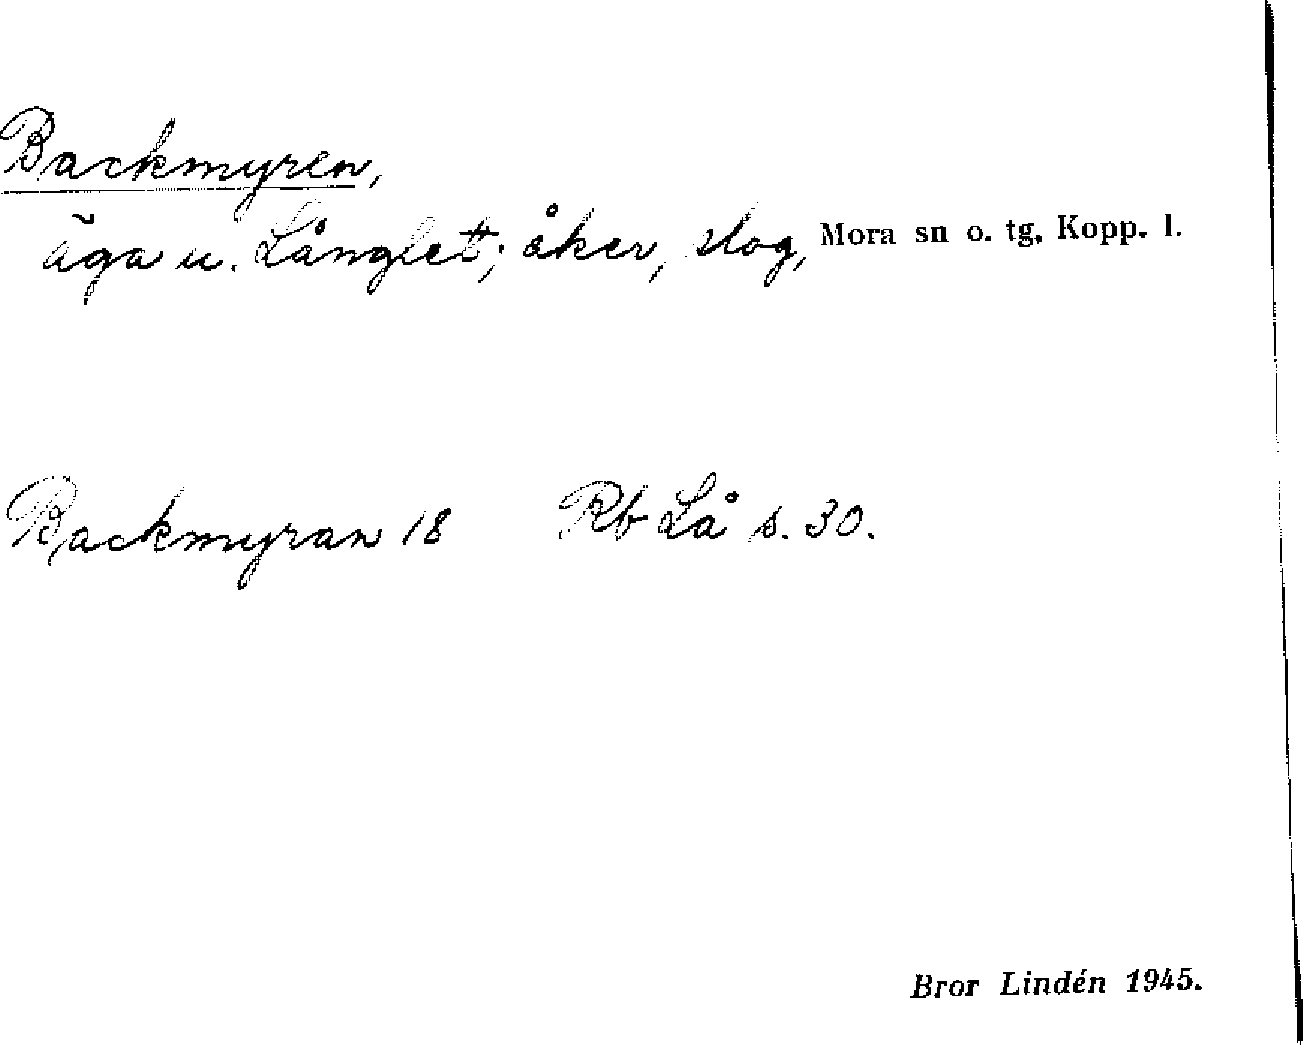 Backmyren,
äga u. Långlet; åker, slog, Mora sn o. tg, Kopp. l.
Backmyran 18 Rb Lå s. 30.
Bror Lindén 1945.